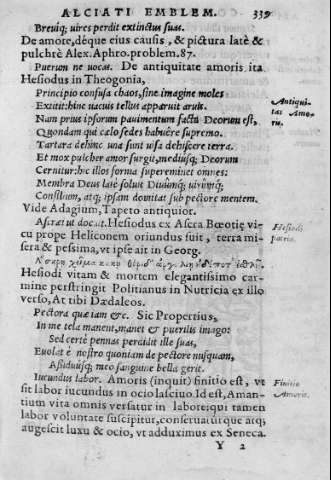 ALCIATI EMBLEM. 339
Breuiq; uires perdit extinctus suas.
De amore, déque eius causis, & pictura latè &
pulchrè Alex. Aphro. problem. 87.
Puerum ne uocas. De antiquitate amoris, ita
Hesiodus in Theogonia,
Principio confusa chaos, sine imagine moles
Extitit: hinc uacuis tellus apparuit aruis.
Antiqui-
tas Amo-
ris.
Nam prius ipsorum pauimentum factū Deorum est,
Quondam qui cælo sedes habuêre supremo.
Tartara dehinc una sunt uisa dehiscere terra.
Et mox pulcher amor surgit, mediusq; Deorum
Cernitur: hic illos forma supereminet omnes:
Membra Deus latè soluit Diuûmq; uirûmq;
Consilium, atq; ipsam domitat sub pectore mentem.
Vide Adagium, Tapeto antiquior.
Ascræus docuit. Hesiodus ex Ascra Bœotię vi-
cu prope Heliconem oriundus fuit, terra mi-
sera & pessima, vt ipse ait in Georg.
Hesiodi
patria.
Hesiodi vitam & mortem elegantissimo car-
mine perstringit Politianus in Nutricia ex illo
verso, At tibi Dædaleos.
Pectora quæ tam &c. Sic Propertius,
In me tela manent, manet & puerilis imago:
Sed certè pennas perdidit ille suas,
Euolat è nostro quoniam de pectore nusquam,
Assiduusq; meo sanguine bella gerit.
Iucundus labor. Amoris (inquit) finitio est, vt
sit labor iucundus in ocio lasciuo. Id est, Aman-
tium vita omnis versatur in labore: qui tamen
labor voluntate suscipitur, conseruatúrque atq;
augescit luxu & ocio, vt adduximus ex Seneca.
Finitio
Amoris.
Y 2